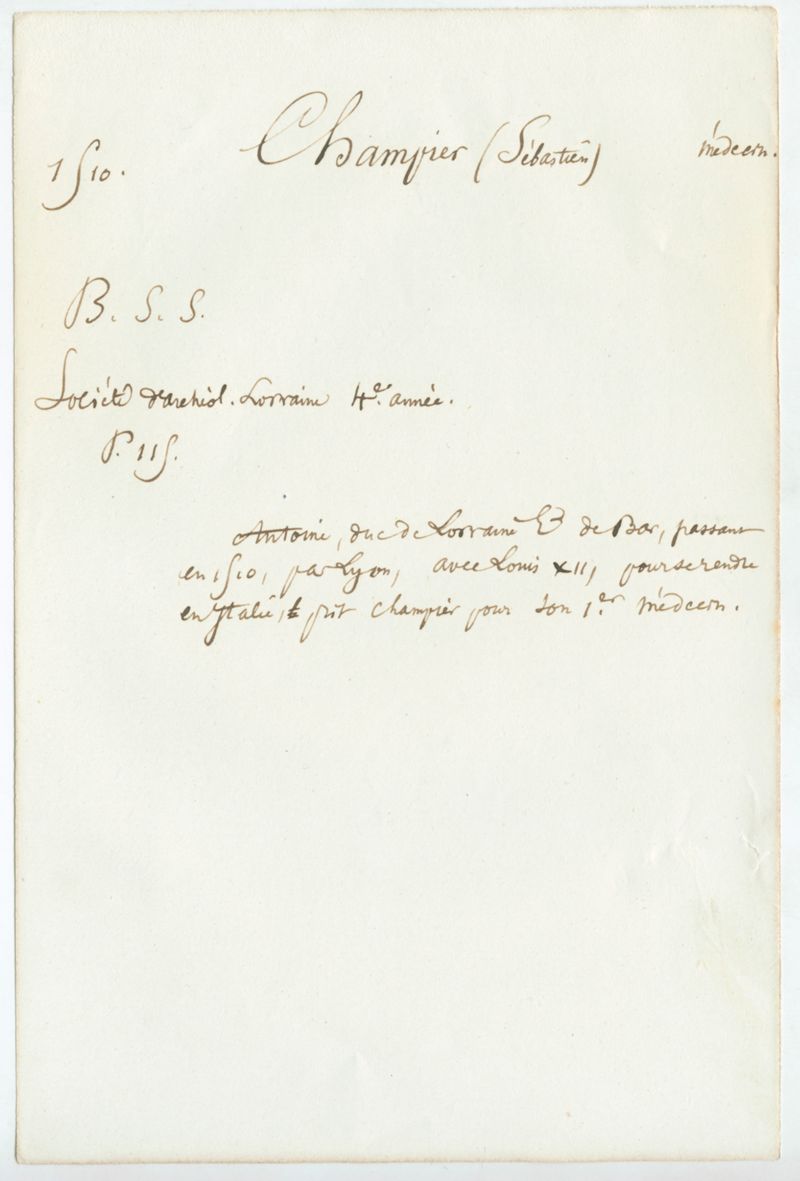 1510. Champier (Sébastien) médecin.
B. S. S.
Société d'archéol. Lorraine 4e. année.
P. 115.
Antoine, duc de Lorraine & de Bar, passant
en 1510, par Lyon, avec Louis XII, pour se rendre
en Italie, prit Champier pour son 1er. médecin.